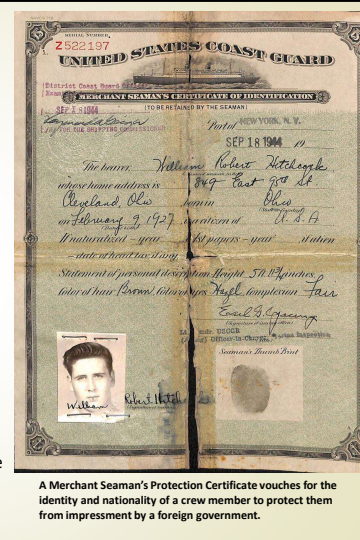 SERIAL NUMBER
Z522197
UNITED STATES COAST GUARD
District Coast Guard
MERCHANT SEAMAN'S CERTIFICATE OF IDENTIFICATION
SEP 18 1944
(TO BE RETAINED BY THE SEAMAN)
FOR THE SHIPPING COMMISSIONER
Port of NEW YORK, N.Y.
SEP 18 1944 19
The bearer William Robert Hitchcock
whose home address is 849 East 95th St
Cleveland, Ohio born in Ohio
on February 9, 1927, a citizen of U.S.A
If naturalized - year 1st papers - year if alien
- date of head tax if any
Statement of personal description Height 5 ft inches
Color of hair Brown, Color of eyes Hazel, Complexion Fair
USCGR
Officer in Charge, Inspection
Seaman's Thumb Print
William Robert
e
A Merchant Seaman's Protection Certificate vouches for the
identity and nationality of a crew member to protect them
from impressment by a foreign government.